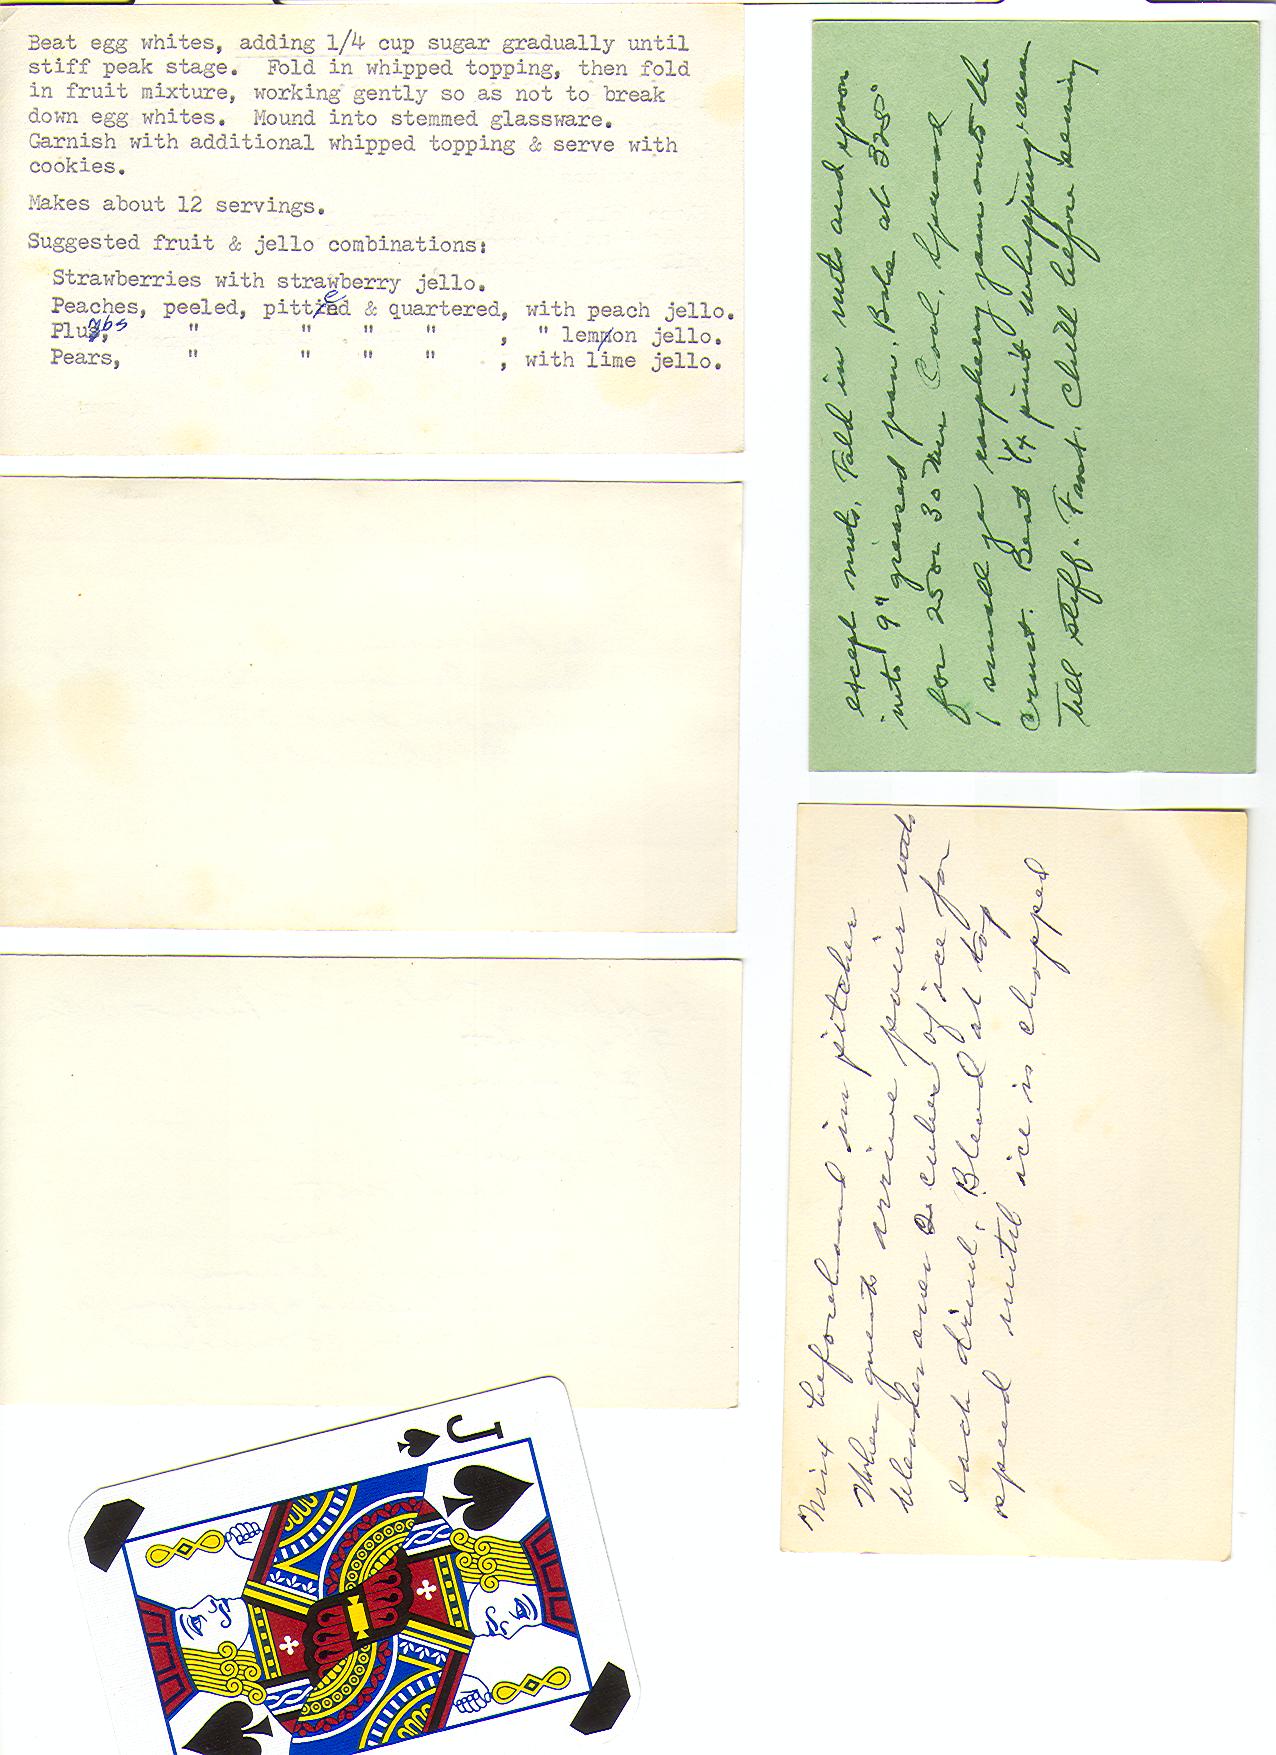 Beat egg whites, adding 1/4 cup sugar gradually until
stiff peak stage. Fold in whipped topping, then fold
in fruit mixture, working gently so as not to break
down egg whites. Mound into stemmed glassware.
Garnish with additional whipped topping & serve with
cookies.
Makes about 12 servings.
Suggested fruit & jello combinations:
Strawberries with strawberry jello.
Peaches, peeled, pitted & quartered, with peach jello.
Plums, " " " " , " lemon jello.
Pears, " " " " , with lime jello.
except nuts. Fold in nuts and spoon
into 9" greased pan. Bake at 325°
for 25 or 30 min Cool. Spread
1 small jar raspberry jam onto the
crust. Beat 1/4 pint whipping cream
till stiff. Frost. Chill before serving
Mix beforehand in pitcher
When guests arrive pour into
blender over 2 cubes of ice for
each drink. Blend at top
speed until ice is chopped
J